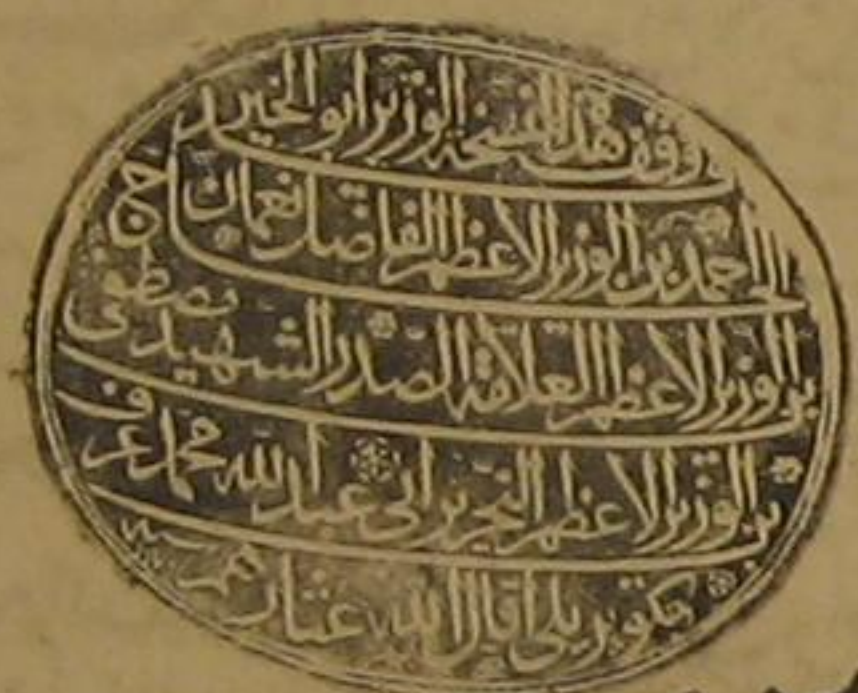 وقف هذه النسخة الوزير ابو الخير
الحاج احمد بن الوزير الاعظم الفاضل نعمان
بن الوزير الاعظم العلامة الصدر الشهيد مصطفى
بن الوزير الاعظم النحرير ابي عبد الله محمد عرف
بكوپريلي اقال الله عثارهم